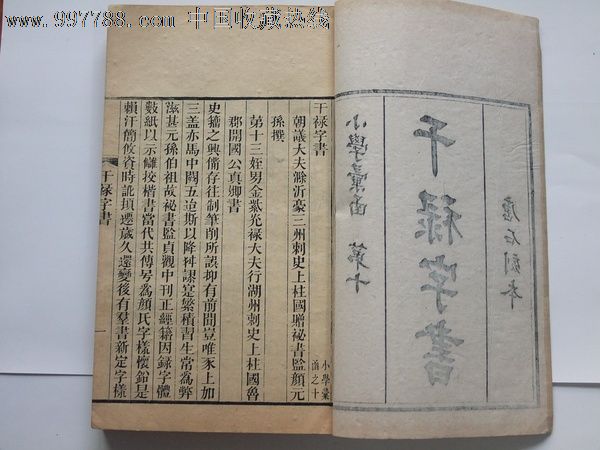 www.997788.com 中国收藏热线
唐石刻本
干禄字書
小學彙函 第十
干禄字書
小學彙
函之十
朝議大夫滁沂豪三州刺史上柱國贈祕書監顔元
孫撰
第十三姪男金紫光禄大夫行湖州刺史上柱國魯
郡開國公真卿書
史籀之興備存往制筆削所誤抑有前聞豈唯豕上加
三蓋亦馬中闕五迨斯以降舛謬寔繁積習生常爲弊
滋甚元孫伯祖故祕書監貞觀中刊正經籍因録字體
數紙以示讎挍楷書當代共傳号爲顔氏字樣懷鉛是
賴汗簡攸資時訛頃遷歲久還變後有羣書新定字樣
干禄字書
一